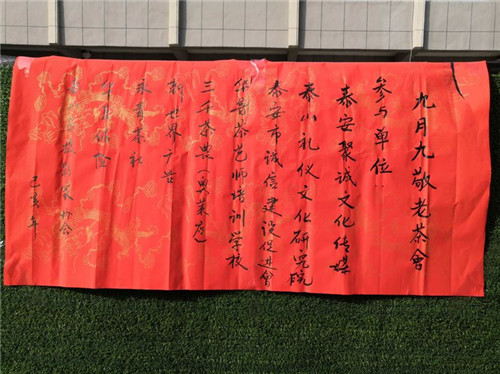 九月九敬老茶會
参与单位
泰安聚诚文化传媒
泰山礼仪文化研究院
泰安市诚信建设促进會
华韵茶艺师培训学校
三千茶農（奥莱店）
新世界广告
茶社
保险
协会
己亥年